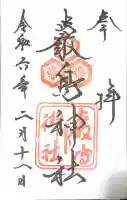 奉拝
嚴島神社
令和六年二月十八日